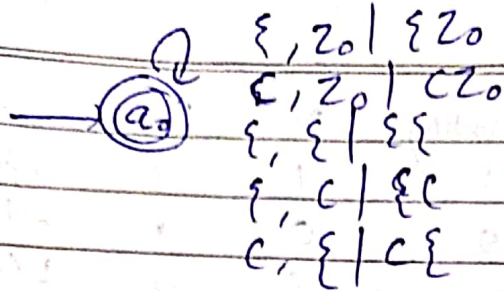 {, z₀ | {z₀
(, z₀ | (z₀
q₀
{, { | {{
{, ( | {(
(, { | ({